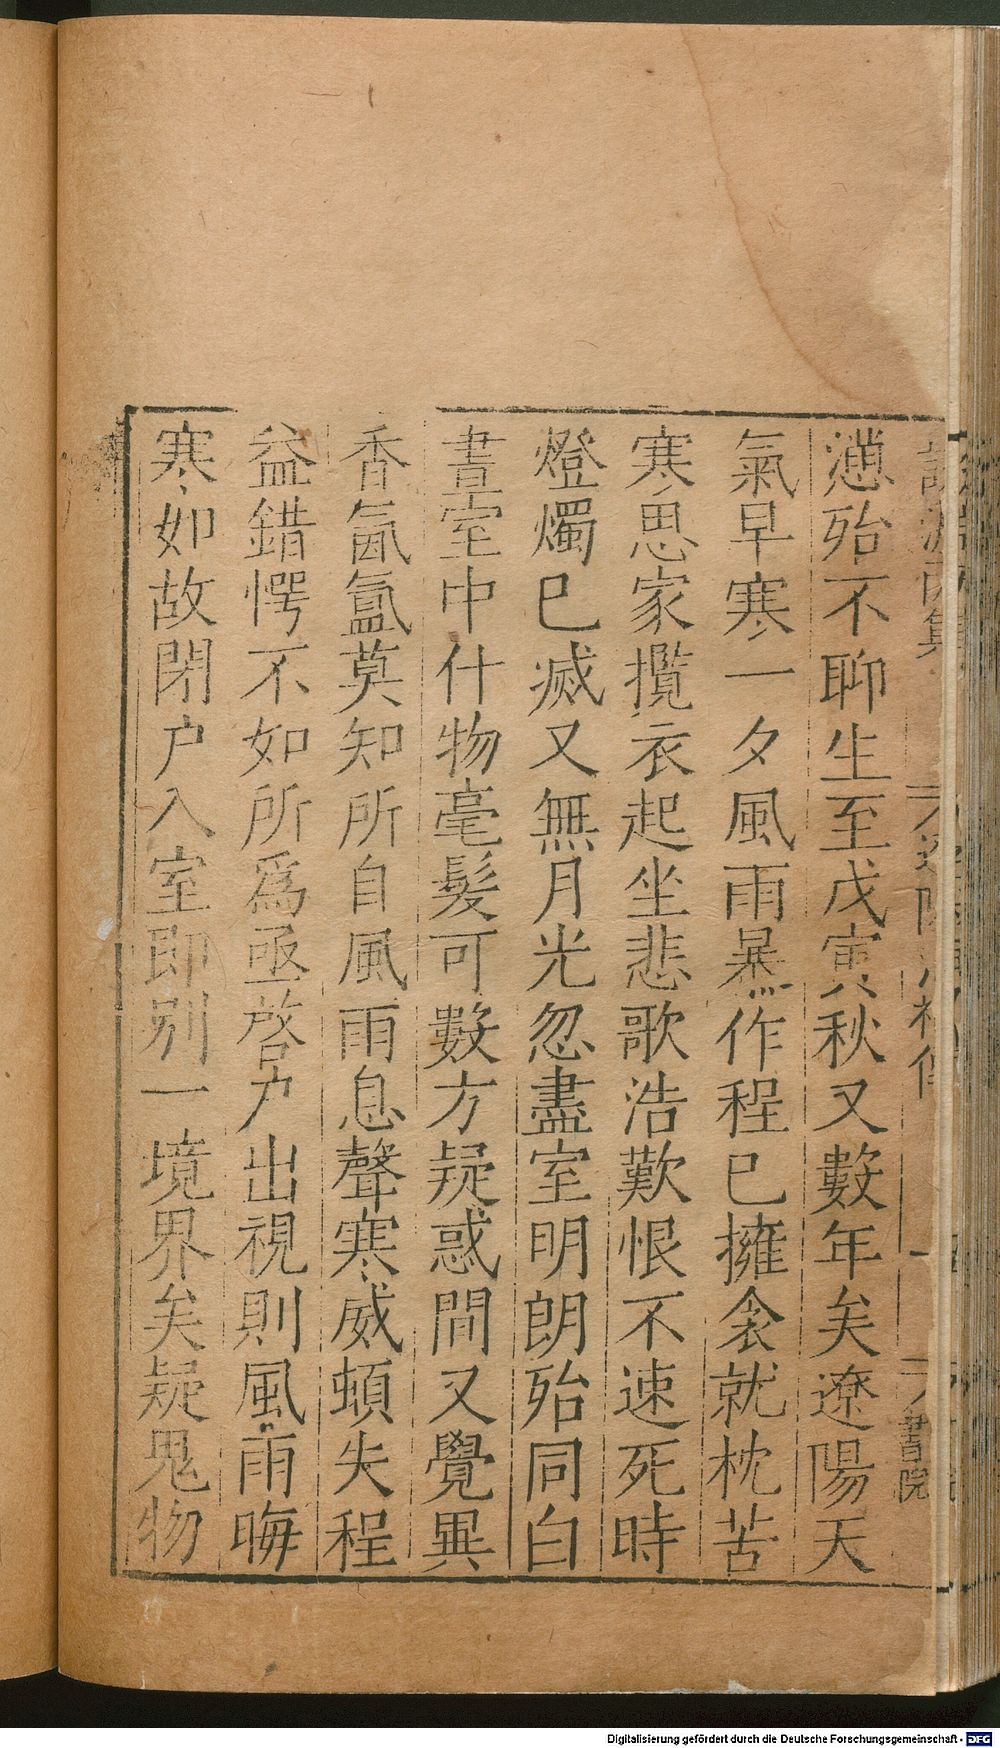 懣殆不聊生至戊寅秋又數年矣遼陽天
氣早寒一夕風雨暴作程已擁衾就枕苦
寒思家攬衣起坐悲歌浩歎恨不速死時
燈燭已滅又無月光忽盡室明朗殆同白
晝室中什物毫髮可數方疑惑間又覺異
香氤氳莫知所自風雨息聲寒威頓失程
益錯愕不如所爲亟啓户出視則風雨晦
寒如故閉户入室即别一境界矣疑鬼物
書院
Digitalisierung gefördert durch die Deutsche Forschungsgemeinschaft - DFG